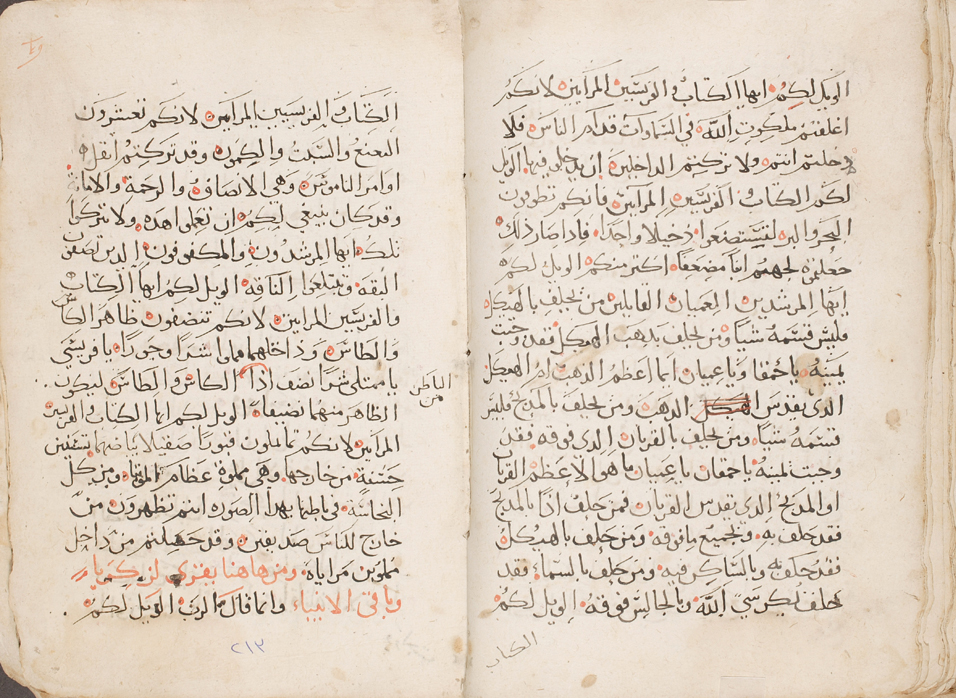 الويل لكم ايها الكتاب والفريسين المرايين لانكم
اغلقتم ملكوت الله في السماوات قدام الناس فلا
دخلتم انتم ولا تركتم الداخلين ان يدخلون فيها الويل
لكم الكتاب والفريسين المرايين فانكم تطوفون
البحر والبر لتستصنعوا دخيلا واحدا فاذا صار ذلك
جعلتموه لجهنم ابنا مضعفا اكثر منكم الويل لكم
ايها المرشدين العميان القايلين من يحلف بالهيكل
فليس قسمه شيا ومن يحلف بدهب الهيكل فقد وجبت
يمينه يا حمقا ويا عميان ايما اعظم الدهب ام الهيكل
الدي يقدس الدهب ومن يحلف بالمدبح فليس
قسمه شيا ومن يحلف بالقربان الدي فوقه فقد
وجبت يمينه يا حمقان يا عميان ما هو الاعظم القربان
او المدبح الدي يقدس القربان فمن حلف ادا بالمدبح
فقد حلف به وبجميع ما فوقه ومن حلف بالهيكل
فقد حلف به وبالساكن فيه ومن حلف بالسماء فقد
حلف بكرسي الله وبالجالس فوقه الويل لكم
الكتاب
الكتاب والفريسيين المرايين لانكم تعشرون
النعنع والسبت والكمون وقد تركتم اثقل
اوامر الناموس وهي الانصاف والرحمة والامانة
وقد كان ينبغي لكم ان تعملوا هده ولا تتركوا
تلك ايها المرشدون والمكفوفون الدين تصفون
البقه وتبتلعوا الناقه الويل لكم ايها الكتاب
والفريسين المرايين لانكم تنضفون ظاهر الكاس
والطاس وداخلهما مملوا شرا وجورا يا فريسي
يا ممتلي شرا نضف ادا الكاس والطاس ليكون
الباطن من
الظاهر منهما نضيفا الويل لكم ايها الكتاب والفريسين
المرايين لانكم تماثلون قبورا صقيلا بياضها تستبين
حسنة من خارجها وهي مملوة عظام الموتا ومن كل
النجاسة في باطنها بهدا الصوره انتم تظهرون من
خارج للناس صديقين وقد حصلتم من داخل
مملوين مراياه ومن هاهنا يقرى لزكريا
وباقي الانبياء وانما قال الرب الويل لكم
٢١٣